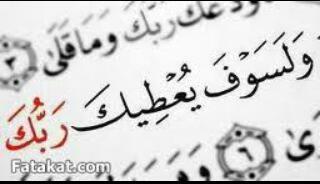 ودعك ربك وما قلى ٣
ولسوف يعطيك ربك
٦
Fatakat.com